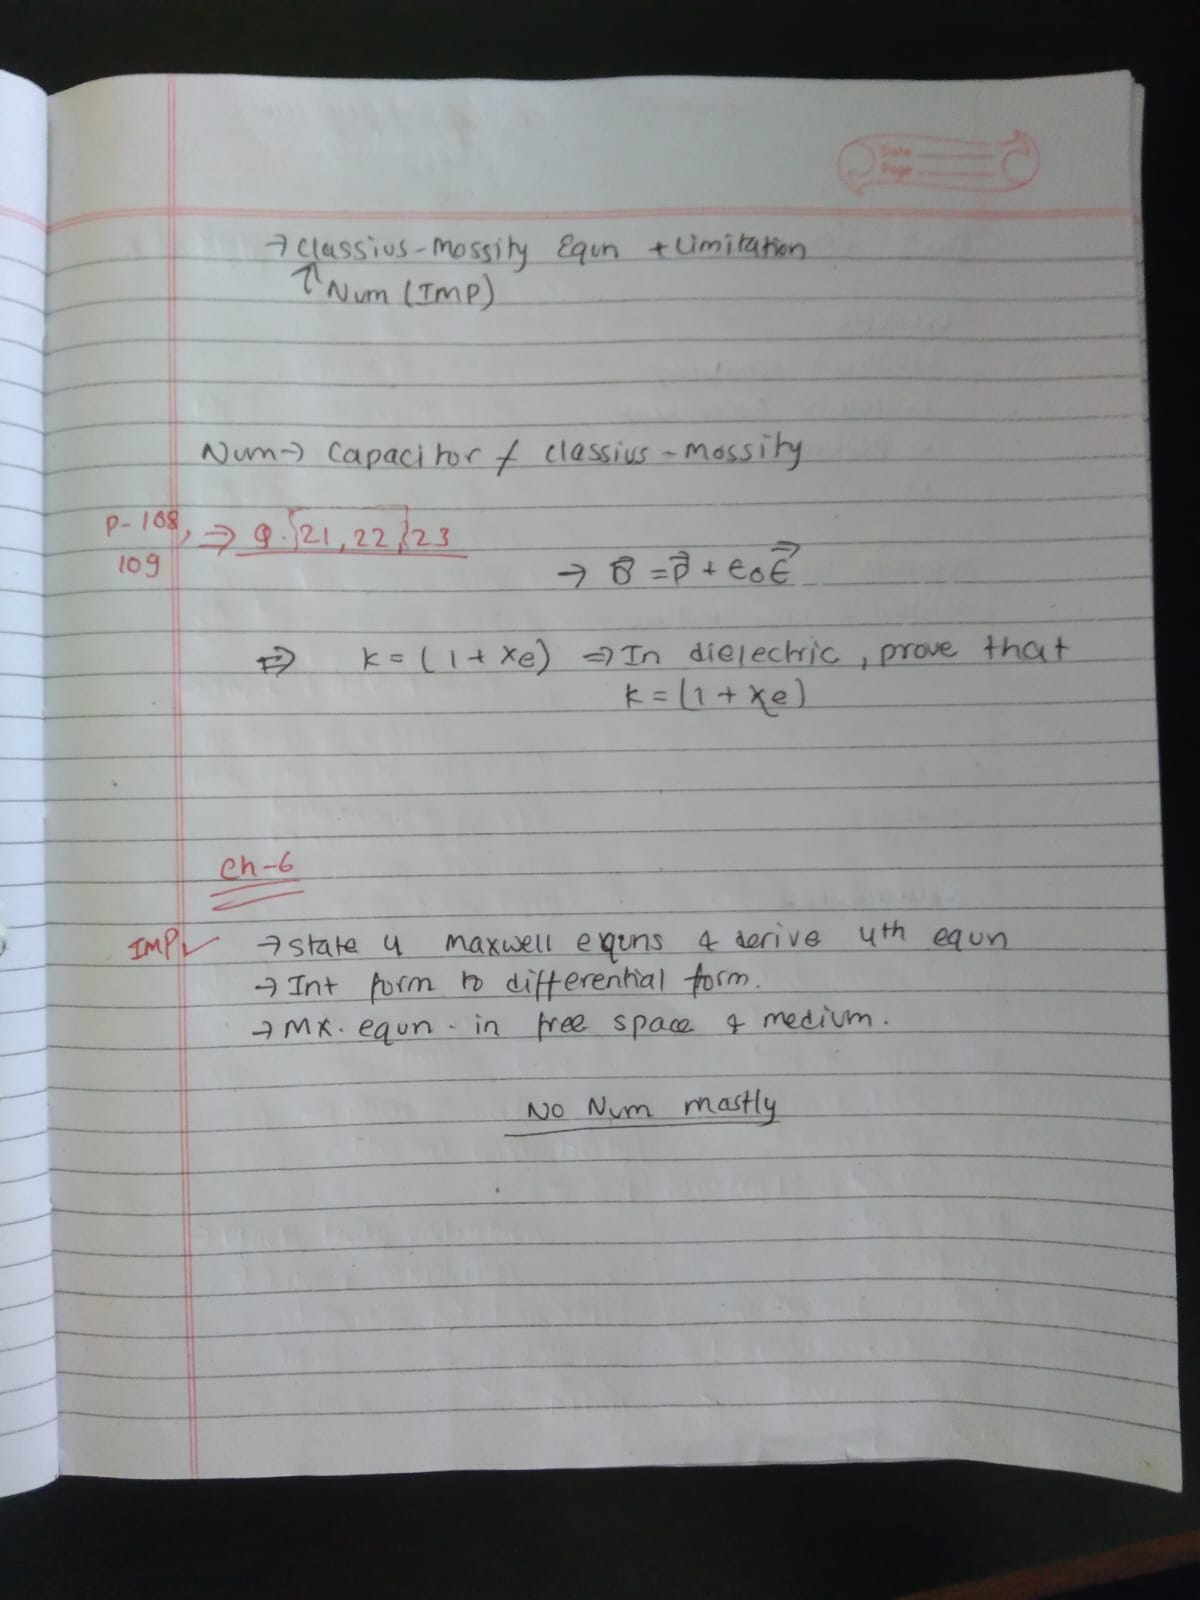 Date
Page
→ Classius-Mossity Equn + Limitation
↑ Num (IMP)
Num → Capacitor & classius-mossity
P-108, ⇒ Q. 21, 22, 23
109
→ D⃗ = P⃗ + ϵ₀E⃗
⇒ K = (1 + χe) ⇒ In dielectric, prove that
K = (1 + χe)
Ch-6
IMP ✓ → State 4 maxwell equns & derive 4th equn
→ Int form to differential form.
→ MX. equn. in free space & medium.
No Num mostly